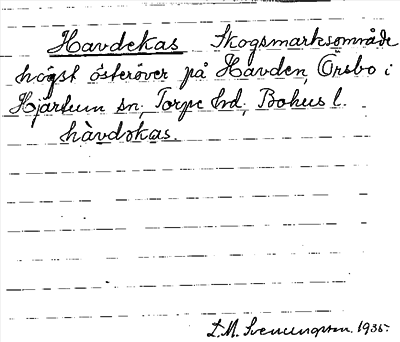 Havdekas Skogsmarksområde
högst österöver på Havden, Orsbo i
Hjärtum sn, Torpe hd, Bohus l.
hàvdǝkas.
L.M. Svenungsson. 1935.